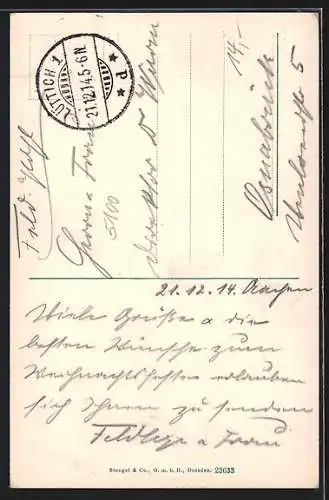 LÜTTICH 1
21.12.14.5-6N
Feld-Post
14,-
Herrn u Frau
Direktor D
Osnabrück
5
21.12.14. Aachen
Viele Grüße u die
besten Wünsche zum
Weihnachtsfeste erlauben
sich Ihnen zu senden
u Frau
Stengel & Co., G. m. b. H., Dresden. 23633